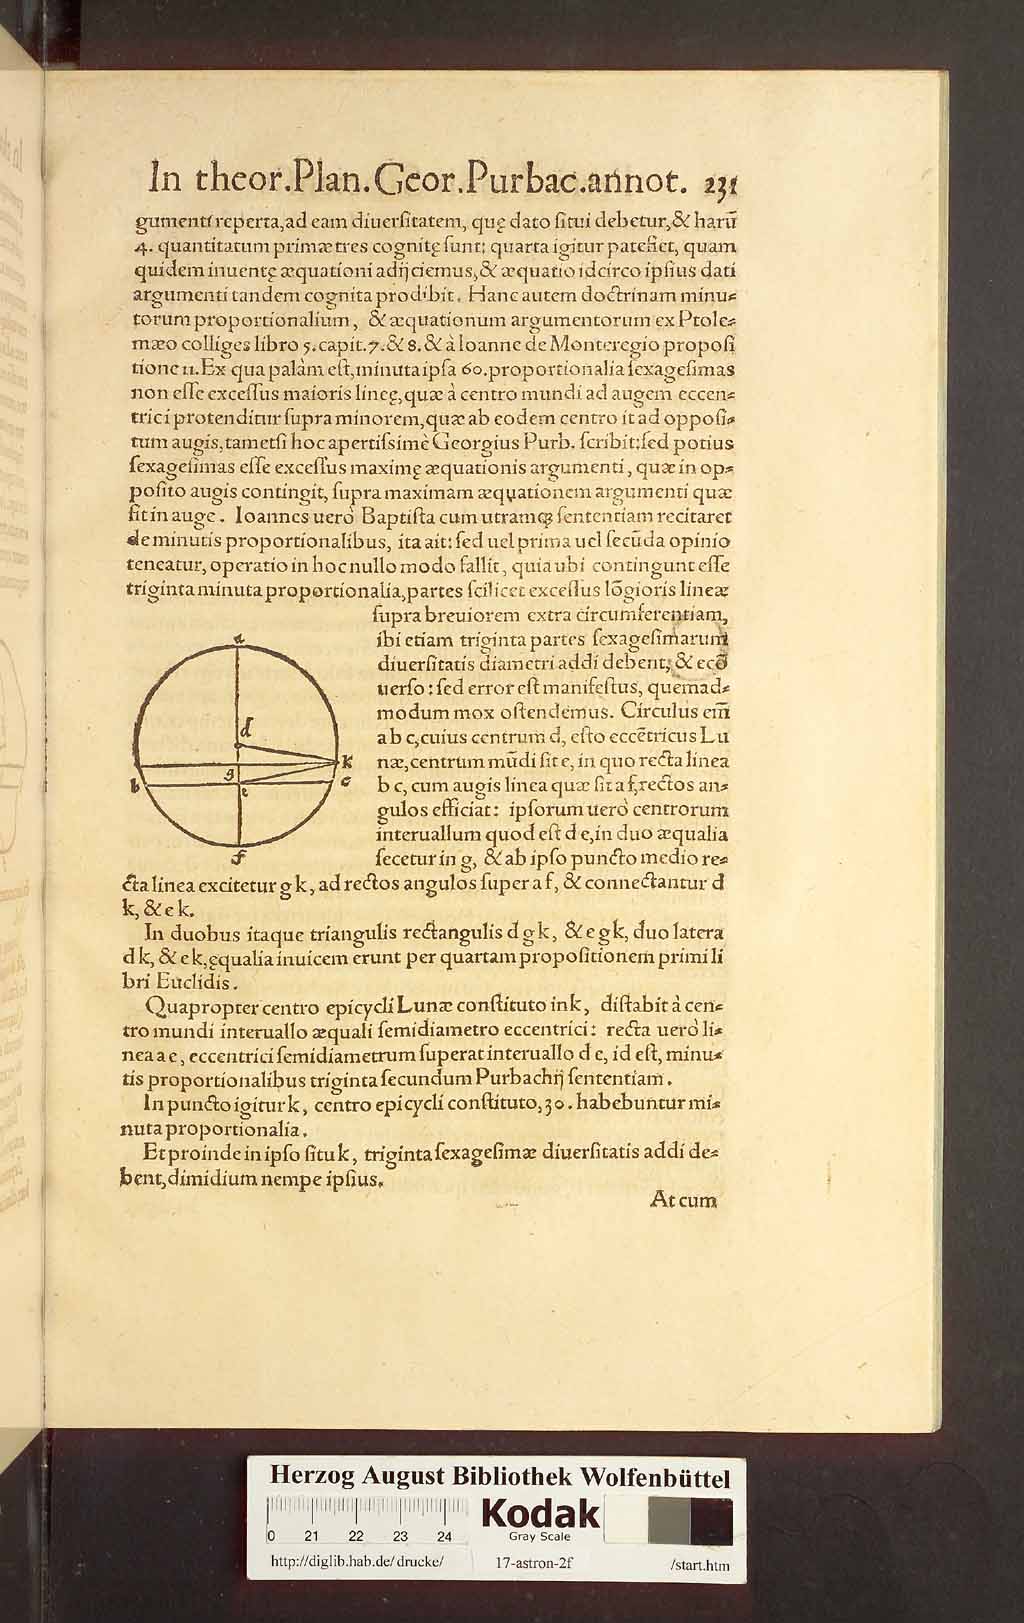 In theor.Plan.Geor.Purbac.annot. 231
gumenti reperta,ad eam diuersitatem, quę dato situi debetur,& harū
4. quantitatum primæ tres cognitę sunt: quarta igitur patefiet, quam
quidem inuentę æquationi adijciemus,& æquatio idcirco ipsius dati
argumenti tandem cognita prodibit. Hanc autem doctrinam minu-
torum proportionalium, & æquationum argumentorum ex Ptole-
mæo colliges libro 5.capit.7.& 8.& à Ioanne de Monteregio proposi
tione 11.Ex qua palàm est,minuta ipsa 60.proportionalia sexagesimas
non esse excessus maioris lineę,quæ à centro mundi ad augem eccen-
trici protenditur supra minorem,quæ ab eodem centro it ad opposi-
tum augis,tametsi hoc apertissimè Georgius Purb. scribit:sed potius
sexagesimas esse excessus maximę æquationis argumenti, quæ in op-
posito augis contingit, supra maximam æquationem argumenti quæ
fit in auge. Ioannes uerò Baptista cum utramq; sententiam recitaret
de minutis proportionalibus, ita ait: sed uel prima uel secūda opinio
teneatur, operatio in hoc nullo modo fallit, quia ubi contingunt esse
triginta minuta proportionalia,partes scilicet excessus lōgioris lineæ
supra breuiorem extra circumferentiam,
ibi etiam triginta partes sexagesimarum
diuersitatis diametri addi debent, & ecō
uerso: sed error est manifestus, quemad-
modum mox ostendemus. Circulus em̄
a b c,cuius centrum d, esto eccētricus Lu
næ,centrum mūdi sit e, in quo recta linea
b c, cum augis linea quæ sit a f,rectos an-
gulos efficiat: ipsorum uerò centrorum
interuallum quod est d e,in duo æqualia
secetur in g, & ab ipso puncto medio re-
cta linea excitetur g k, ad rectos angulos super a f, & connectantur d
k, & e k.
a
d
k
g
b
c
e
f
In duobus itaque triangulis rectangulis d g k, & e g k, duo latera
d k, & e k,ęqualia inuicem erunt per quartam propositionem primi li
bri Euclidis.
Quapropter centro epicycli Lunæ constituto in k, distabit à cen-
tro mundi interuallo æquali semidiametro eccentrici: recta uerò li-
nea a e, eccentrici semidiametrum superat interuallo d e, id est, minu-
tis proportionalibus triginta secundum Purbachij sententiam.
In puncto igitur k, centro epicycli constituto,30. habebuntur mi-
nuta proportionalia.
Et proinde in ipso situ k, triginta sexagesimæ diuersitatis addi de-
bent,dimidium nempe ipsius.
At cum
Herzog August Bibliothek Wolfenbüttel
0 21 22 23 24
Kodak
Gray Scale
http://diglib.hab.de/drucke/ 17-astron-2f /start.htm